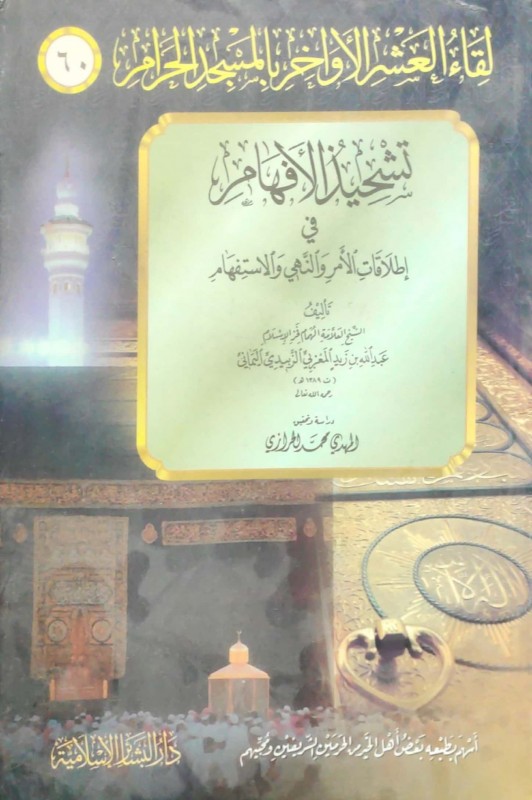 لِقَاءُ العَشْرِ الأَوَاخِرِ بِالمَسْجِدِ الحَرَامِ
٦٠
تَشْحِيذُ الأَفْهَامِ
في
إطلَاقَاتِ الأَمْرِ وَالنَّهْيِ وَالاسْتِفْهَامِ
تَأليفُ
الشيخ العلامة الهمام فخر الإسلام
عبد الله بن زيد المغربي الزبيدي اليماني
(ت ١٣٨٩ هـ)
رحمه الله تعالى
دراسة وتحقيق
المهدي محمد الحرازي
أسْهَمَ بِطَبْعِهِ بَعْضُ أَهْلِ الخَيْرِ مِنَ الحَرَمَيْنِ الشَّرِيفَيْنِ وَمُحِبِّيهِم
دَارُ البَشَائِرِ الإِسْلَامِيَّة